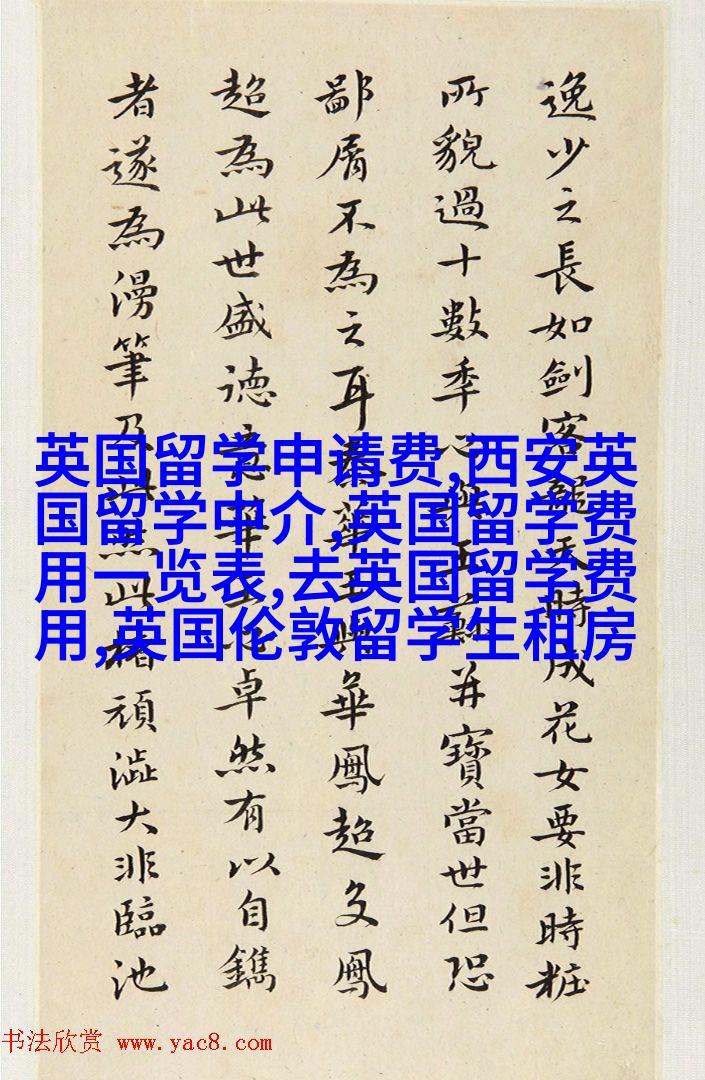 逸少之長如劍客時成花女要非時粧
所貌過十數季心王蘇并寶當世但恐
鄙屑不為之耳華鳳超文鳳
超為此世盛德卓然有以自鐫
者遂為漫筆及此然此楮頑澁大非臨池
英国留学申请费,西安英
国留学中介,英国留学费
用一览表,去英国留学费
用,英国伦敦留学生租房
书法欣赏 www.yac8.com